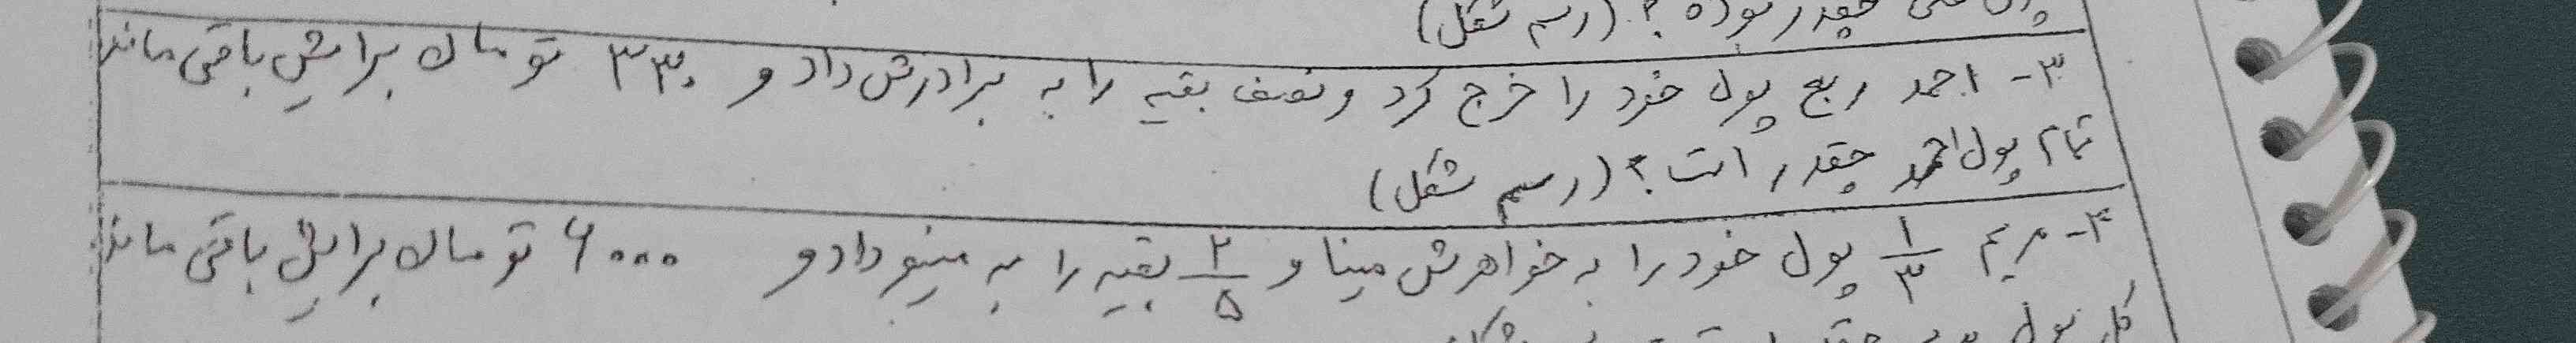 پول علی چقدر بوده؟ (رسم شکل)
۳- احمد ربع پول خود را خرج کرد و نصف بقیه را به برادرش داد و ۳۳۰ تومان برایش باقی ماند
تمام پول احمد چقدر است؟ (رسم شکل)
۴- مریم ۱/۳ پول خود را به خواهرش مینا و ۲/۵ بقیه را به مینو داد و ۶۰۰۰ تومان برایش باقی ماند
کل پول